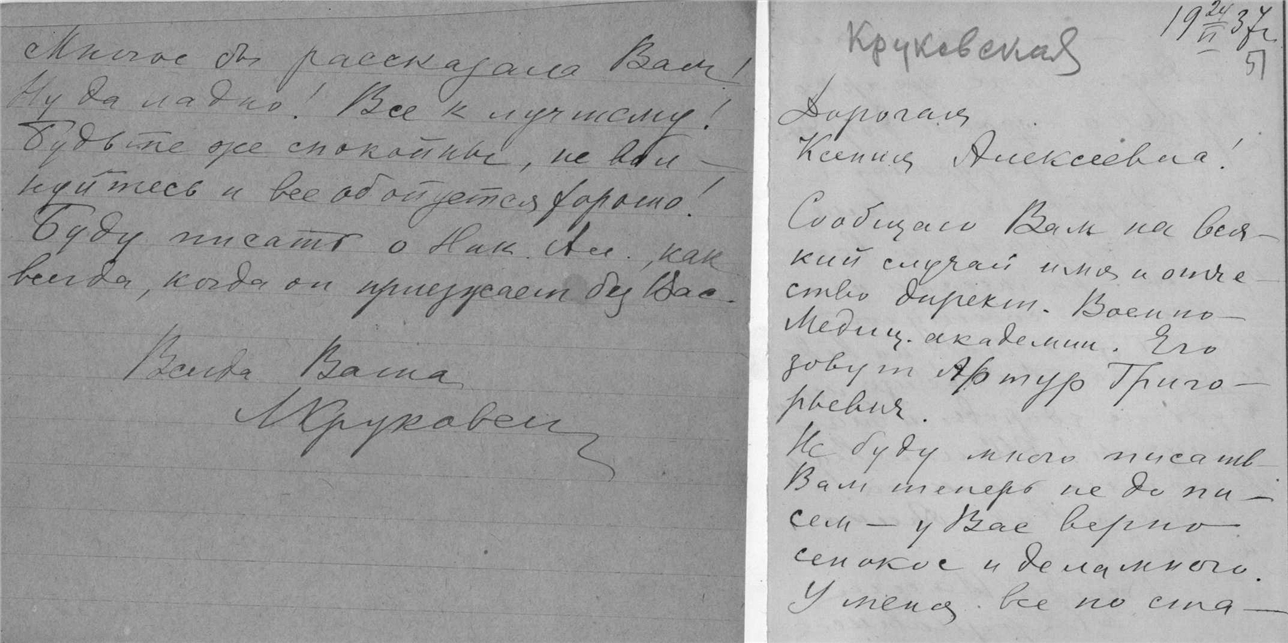 Многое бы рассказала Вам!
Ну да ладно! Все к лучшему!
Будьте же спокойны, не вол-
нуйтесь и все обойдется хорошо!
Буду писать о Ник. Ал., как
всегда, когда он приезжает без Вас.
Всегда Ваша
МКруковск
Круковская
19 24/VI 37 г.
51
Дорогая
Ксения Алексеевна!
Сообщаю Вам на вся-
кий случай имя и отче-
ство директ. Военно-
Медиц. академии. Его
зовут Артур Григо-
рьевич.
Не буду много писать
Вам теперь не до пи-
сем – у Вас верно
сенокос и дела много.
У меня все по ста-